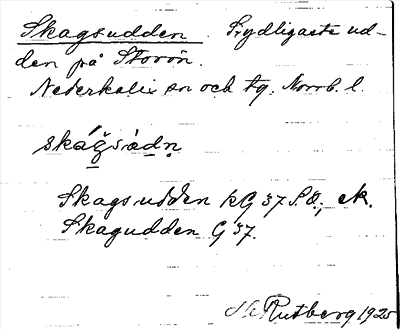 Skagsudden. Sydligaste ud-
den på Storön.
Nederkalix sn och tg. Norrb. l.
skágsùdn̥
Skagsudden kG 37 S.Ö., ek.
Skagudden G 37.
H. Rutberg 1925